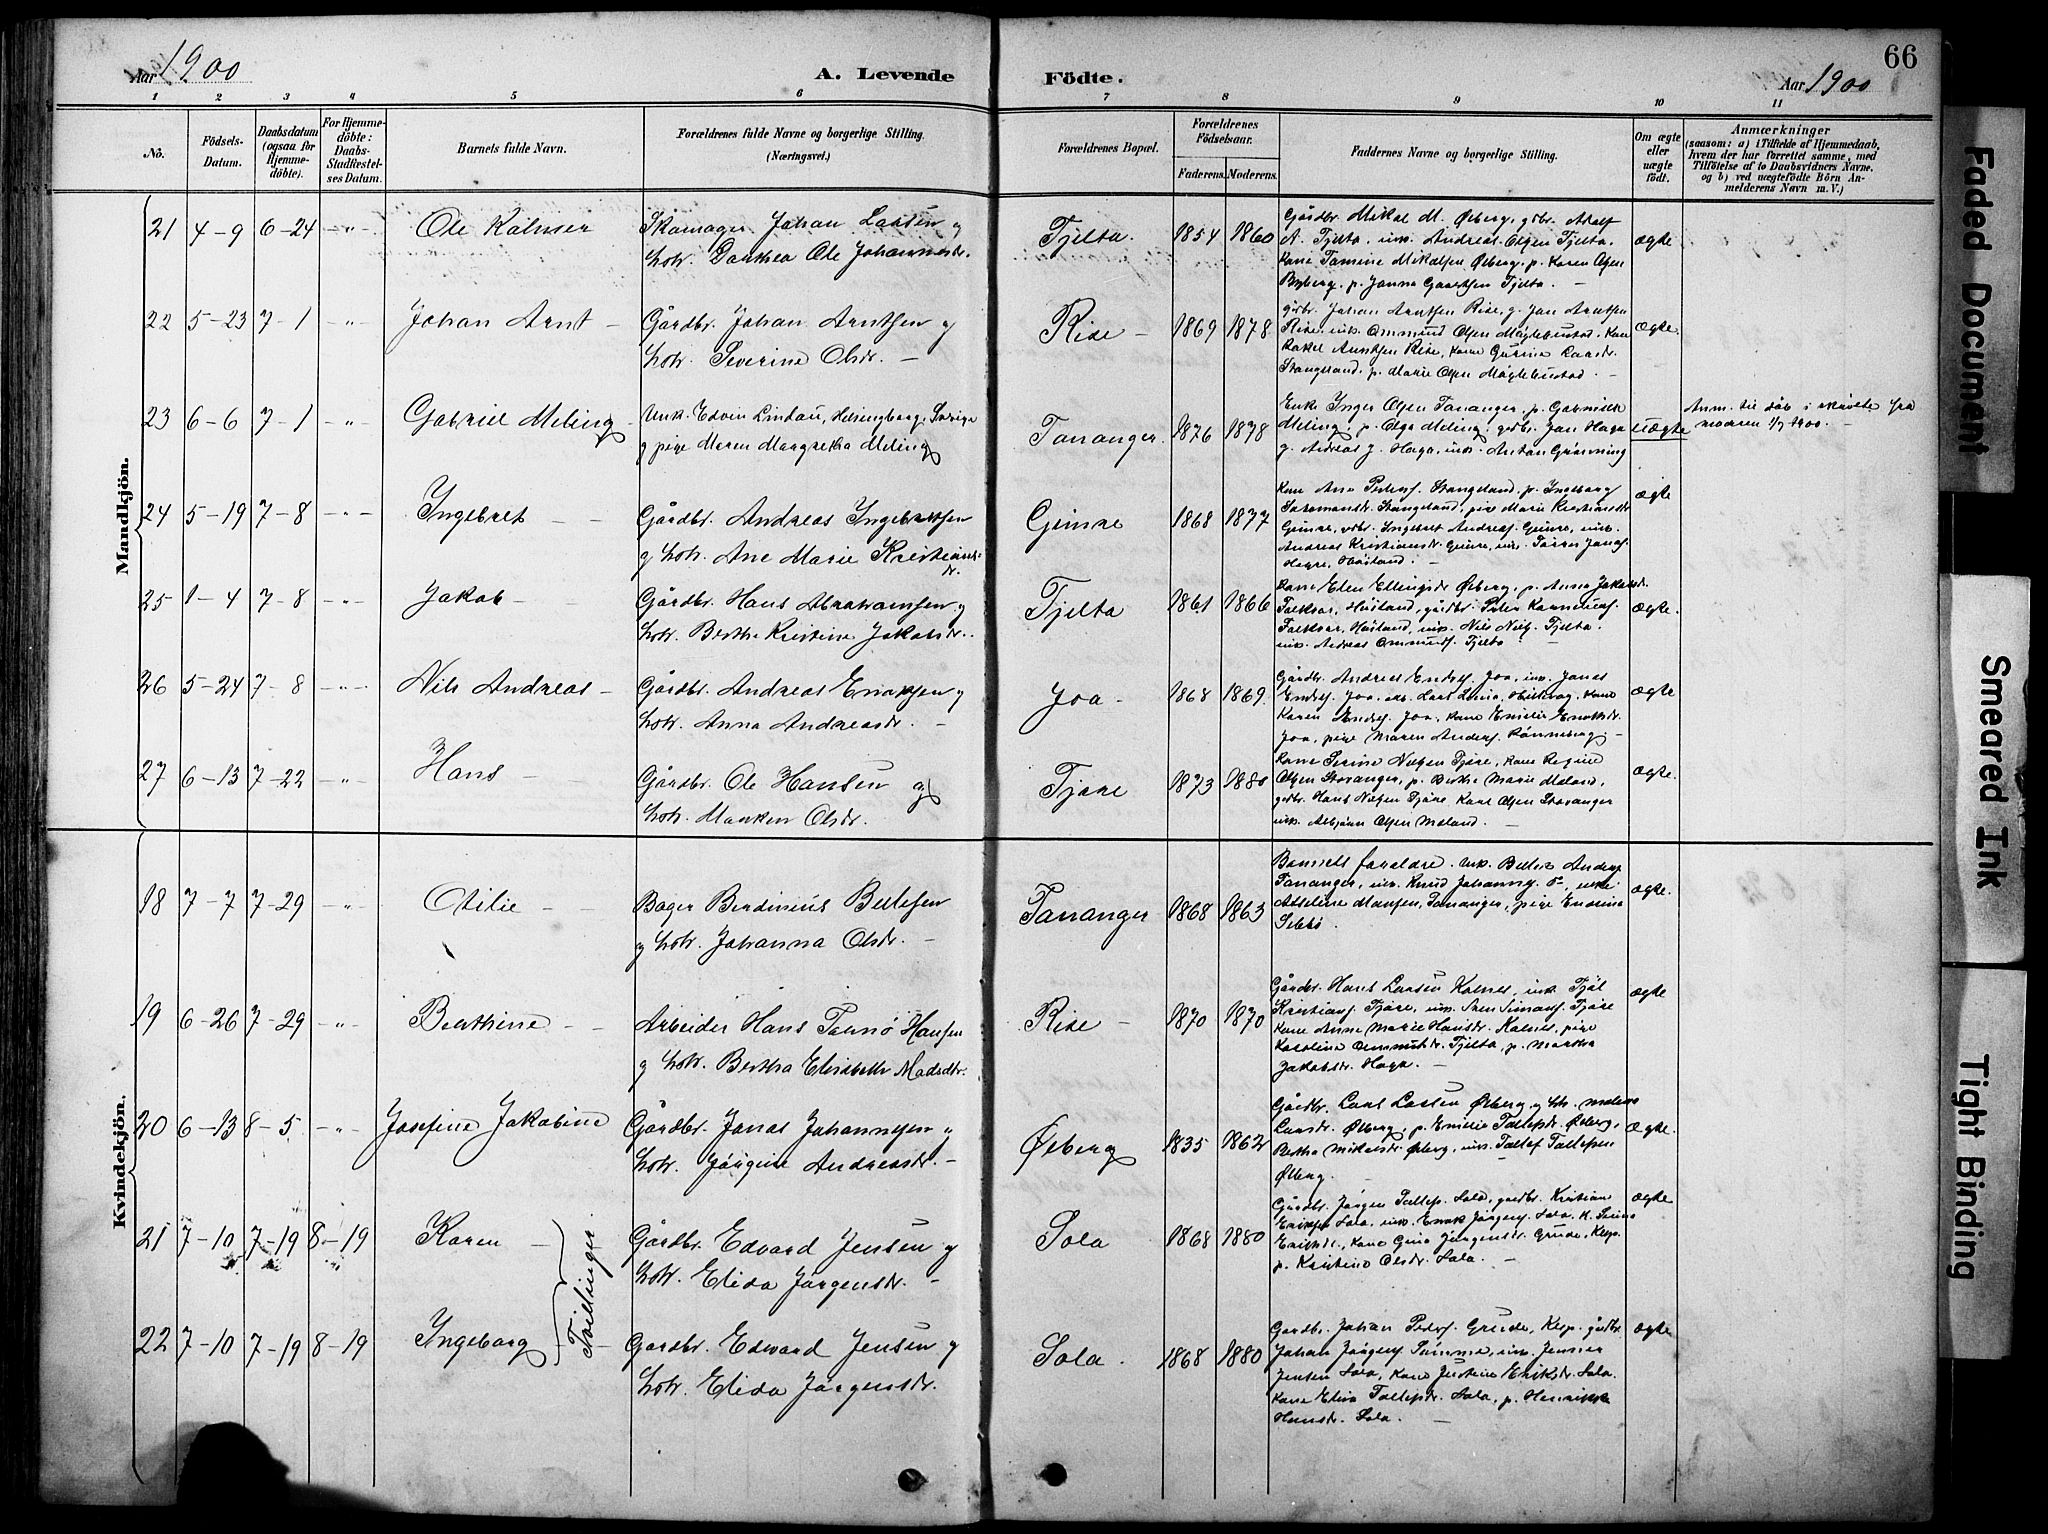 Aar 1900
A. Levende
Födte.
66
Aar 1900
1 2 3 4 5 6 7 8 9 10 11
No.
Födsels-
Datum.
Daabsdatum
(ogsaa for
Hjemme-
döbte).
For Hjemme-
döbte:
Daabs-
Stadfæstel-
ses Datum.
Barnets fulde Navn.
Forældrenes fulde Navne og borgerlige Stilling.
(Næringsvei.)
Forældrenes Bopæl.
Forældrenes
Födselsaar.
Faderens. Moderens.
Faddernes Navne og borgerlige Stilling.
Om ægte
eller
uægte
födt.
Anmærkninger
(saasom: a) i Tilfælde af Hjemmedaab,
hvem der har forrettet samme, med
Tilföielse af to Daabsvidners Navne,
og b) ved uægtefödte Börn An-
melderens Navn m. V.)
Mandkjön.
21 4-9 6-24 -"- Ole Kolnser
Skomager Johan Larsen og
hstr. Dorthea Ole Johannesdr.
Tjelta. 1854 1860
Gårdbr. Mikal M. Ølberg, gbr. Adolf
A. Tjelta, unk. Andreas Olsen Tjelta.
Kone Tamine Mikalsen Ølberg, p. Karen Olsen
Byberg, p. Janna Tjelta. -
ægte
22 5-23 7-1 -"- Johan Arnt -
Gårdbr. Johan Arntsen og
hstr. Severine Olsdr. -
Rise - 1869 1878
gbr. Johan Arntsen Rise, g. Jan Arntsen
Rise, unk. Ommund Olsen Maglebustad. Kone
Rakel Arntsen Rise, kone Gurine Larsdr.
Stangeland, p. Marie Olsen Maglebustad. -
ægte.
23 6-6 7-1 -"- Gabriel Meling -
Unk. Edvin Lindau, Helsingborg, Sverige
og pige Maren Margretha Meling
Tananger. 1876 1878
Enke Inger Olsen Tananger, p. Gabrielle
Meling, p. Olga Meling, gdbr. Jan Haga
g. Andreas J. Haga, unk. Anton Grønning
uægte
Anm. til dåb i skrivelse fra
moderen 1/7 1900. -
24 5-19 7-8 -"- Ingebret - -
Gårdbr. Andreas Ingebretsen
og hstr. Ane Marie Kristians-
dr.
Gimre 1868 1877
Kone Ane Peders. Stangeland, p. Ingeborg
Stangeland, pige Marie Kristiansdr.
Gimre, gdbr. Ingebret Andreas. Gimre, unk.
Andreas Kristians. Gimre, unk. Tørres Jonas.
Hagre, Høiland. -
ægte
25 1-4 7-8 -"- Jakob - -
Gårdbr. Hans Abrahamsen og
hstr. Berthe Kristine Jakobsdr.
Tjelta 1861 1866
Kone Elen Ellingsdr. Ølberg, p. Anna Jakobsdr.
Høiland, gårdbr. Peder
Høiland, unk. Nils Nils. Tjelta.
unk. Andreas Ommunds. Tjelta
ægte.
26 5-24 7-8 -"- Nils Andreas -
Gårdbr. Andreas Enoksen og
hstr. Anna Andreasdr. -
Joa - 1868 1869.
Gårdbr. Andreas Endres. Joa, unk. Jonas
Endres. Joa, Kone
Karen Endres. Joa, kone Emilie
Joa, pige Maren Anders. Rønneberg -
ægte
27 6-13 7-22 -"- Hans -
Gårdbr. Ole Hansen og
hstr. Manken Olsdr.
Tjåre 1873 1880
Kone Serine Nilsen Tjåre, kone Regine
Olsen Stavanger, p. Berthe Marie Meland,
gdbr. Hans Nilsen Tjåre Karl Olsen Stavanger
unk. Asbjørn Olsen Meland. -
ægte.
Kvindekjön.
18 7-7 7-29 -"- Otilie -
Bager Berdinius Bellesen
og hstr. Johanna Olsdr. -
Tananger 1868 1863
Barnets forældre. unk. Anders
Tananger, unk. Knud Johannes. enke
Tananger, pige
ægte.
19 6-26 7-29 -"- Berthine -
Arbeider Hans Tornø Hansen
og hstr. Bertha Elisabeth Madsdtr.
Rise - 1870 1870
Gårdbr. Hans Larsen Kolnes, unk.
Kristians. Tjåre, unk. Sven Simons. Tjåre
Kone Anne Marie Hansdr. Kolnes, pige
Karoline Ommundsdr. Tjelta, p. Martha
Jakobsdr. Haga. -
ægte
20 6-13 8-5 -"- Josefine Jakobine
Gårdbr. Jonas Johannesen og
hstr. Jørgine Andreasdr. -
Ølberg 1835 1862
Gårdbr. Lars Larsen Ølberg, og hstr.
Larsdr. Ølberg, p. Emilie Tollefsdr. Ølberg,
Bertha Mikalsdr. Ølberg, unk. Tollef Tollefsen
Ølberg. -
ægte.
21 7-10 7-19 8-19 Karen -
Tvillinger
Gårdbr. Edvard Jensen og
hstr. Elida Jørgensdr. -
Sola 1868 1880
Gårdbr. Jørgen Tollefs. Sola, gardbr. Kristian
Eriksen Sola, unk. Enok Jørgens. Sola, K.
Eriksdr., kone Gina Jørgensdr. Grude, Klep.
p. Kristine Olsdr. Sola. -
ægte
22 7-10 7-19 8-19 Ingeborg -
Gardbr. Edward Jensen og
hstr. Elida Jørgensdr.
Sola. 1868 1880
Gardbr. Johan Peders. Grude, Klep. gårdbr.
Johan Jørgens. Sømme, unk.
Jensen Sola, Kone Justine Eriksdr. Sola.
Kone Elisa Tollefsdr. Sola, p. Henrikke
Hansdr. Sola. -
ægte
Faded Document
Smeared Ink
Tight Binding